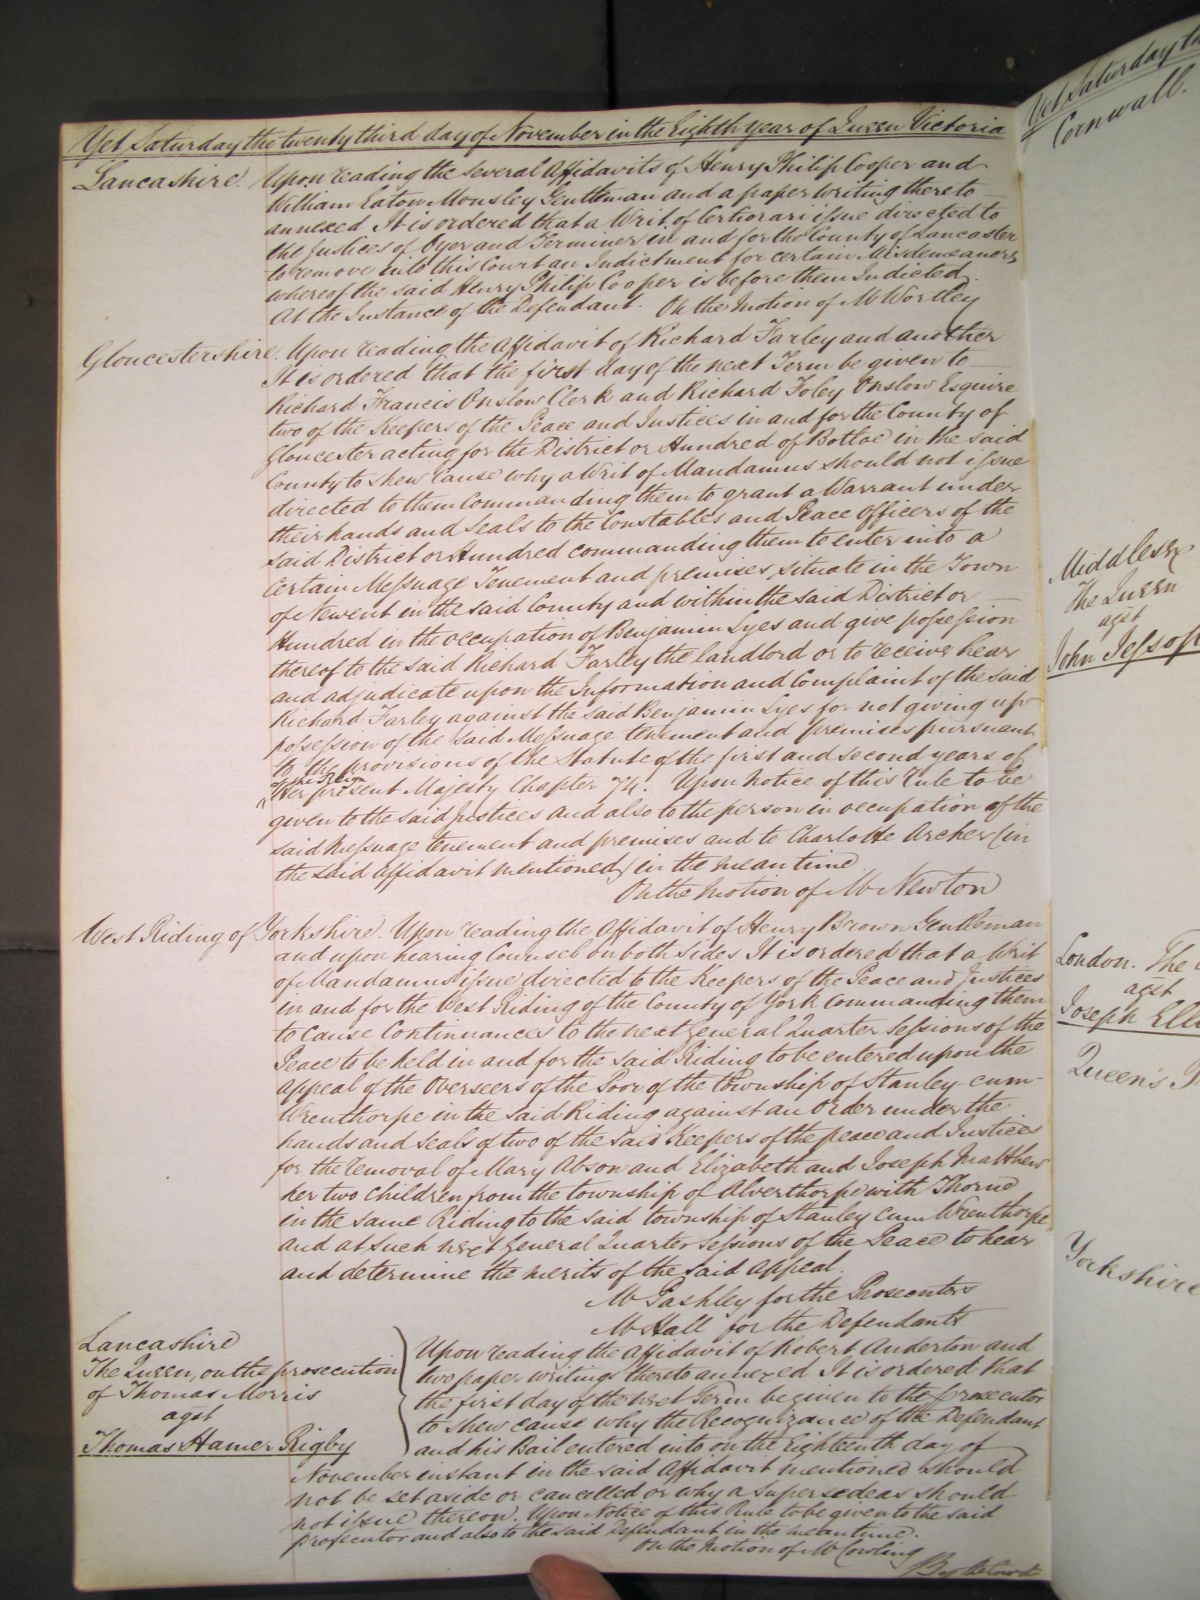 Yet Saturday the twenty third day of November in the Eighth Year of Queen Victoria
Lancashire. Upon reading the several Affidavits of Henry Philip Cooper and
William Eaton Mousley Gentleman and a paper writing thereto
annexed It is ordered that a Writ of Certiorari issue directed to
the Justices of Oyer and Terminer in and for the County of Lancaster
to remove into this Court an Indictment for certain Misdemeanors
whereof the said Henry Philip Cooper is before them Indicted.
At the Instance of the Defendant. On the Motion of Mr Wortley
Gloucestershire. Upon reading the Affidavit of Richard Farley and another
It is ordered that the first day of the next Term be given to
Richard Francis Onslow Clerk and Richard Foley Onslow Esquire
two of the Keepers of the Peace and Justices in and for the County of
Gloucester acting for the District or Hundred of Botloe in the said
County to shew Cause why a Writ of Mandamus should not issue
directed to them Commanding them to grant a Warrant under
their hands and seals to the Constables and Peace Officers of the
said District or Hundred commanding them to enter into a
Certain Messuage Tenement and premises situate in the Town
of Newent in the said County and within the said District or
Hundred in the occupation of Benjamin Lyes and give possession
thereof to the said Richard Farley the landlord or to receive hear
and adjudicate upon the Information and Complaint of the said
Richard Farley against the said Benjamin Lyes for not giving up
possession of the said Messuage tenement and premises pursuant
to the provisions of the Statute of the first and second years of
of the Reign
Her present Majesty Chapter 74. Upon Notice of this Rule to be
given to the said Justices and also to the person in occupation of the
said Messuage tenement and premises and to Charlotte Archer (in
the said affidavit mentioned) in the mean time.
On the Motion of Mr Newton
West Riding of Yorkshire. Upon reading the Affidavit of Henry Brown Gentleman
and upon hearing Counsel on both sides It is ordered that a Writ
of Mandamus issue directed to the Keepers of the Peace and Justices
in and for the West Riding of the County of York Commanding them
to cause Continuances to the next General Quarter Sessions of the
Peace to be held in and for the said Riding to be entered upon the
appeal of the Overseers of the Poor of the Township of Stanley cum-
Wrenthorpe in the said Riding against an Order under the
hands and seals of two of the said Keepers of the peace and Justices
for the removal of Mary Abson and Elizabeth and Joseph Matthew
her two Children from the township of Alverthorpe with Thorne
in the same Riding to the said township of Stanley cum Wrenthorpe
and at such next General Quarter Sessions of the Peace to hear
and determine the merits of the said appeal.
Mr Pashley for the Prosecutors
Mr Hall for the Defendants
Lancashire
The Queen, on the prosecution
of Thomas Morris
agst
Thomas Hamer Rigby
Upon reading the Affidavit of Robert Anderton and
two paper writings thereto annexed It is ordered that
the first day of the next Term be given to the prosecutor
to shew cause why the Recognizance of the Defendant
and his Bail entered into on the Eighteenth day of
November instant in the said Affidavit mentioned should
not be set aside or cancelled or why a supersedeas should
not issue thereon. Upon Notice of this Rule to be given to the said
prosecutor and also to the said Defendant in the mean time.
On the Motion of Mr Cowling
By the Court
Yet Saturday th
Cornwall.
Middlesex
The Queen
agst
John Jessop
London. The
agst
Joseph Elle
Queen's
Yorkshire